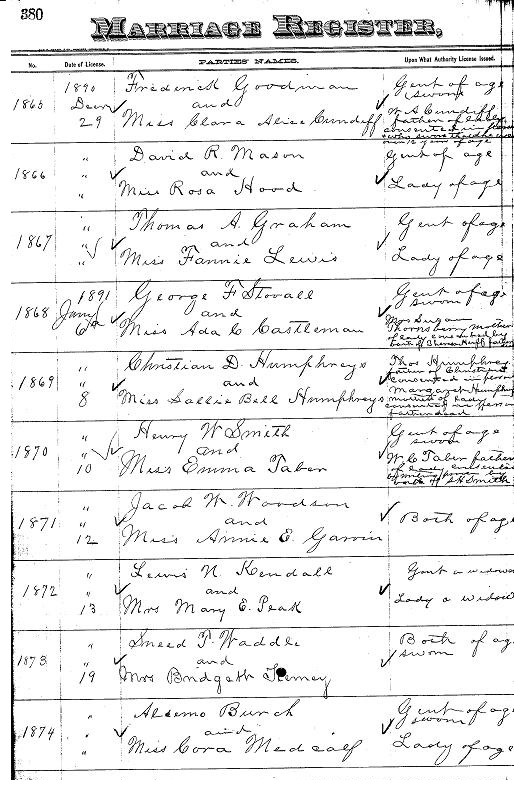 380
MARRIAGE REGISTER,
No. Date of License. PARTIES' NAMES. Upon What Authority License Issued.
1865 1890 Decr 29 Frederick Goodman and Miss Clara Alice Cundiff
Gent of age sworn
W A Cundiff father of lady consented in person
1866 " " " David R. Mason and Miss Rosa Hood
Gent of age
Lady of age
1867 " " " Thomas A. Graham and Miss Fannie Lewis
Gent of age
Lady of age
1868 1891 Jany 6th George F Stovall and Miss Ada C Castleman
Gent of age sworn
Mrs Susan Thornsberry mother of lady consented by
1869 " " 8 Christian D. Humphreys and Miss Sallie Bell Humphreys
Thos Humphrey father of Christian consented in person
Margaret Humphrey mother of lady consented in person father dead
1870 " " 10 Henry W Smith and Miss Emma Taber
Gent of age sworn
W C Taber father of lady consented by S H Smith
1871 " " 12 Jacob W. Woodson and Miss Annie E. Garvin
Both of age
1872 " " 13 Lewis N. Kendall and Mrs Mary E. Peak
Gent a widow
Lady a widow
1873 " " 19 Sneed T. Waddle and Mrs Bridgett
Both of ag
sworn
1874 " " " Alcemo Burch and Miss Cora Medcalf
Gent of age sworn
Lady of age